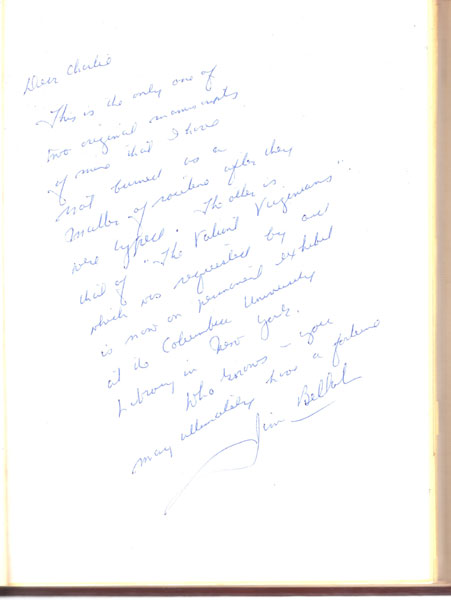 Dear Charlie
This is the only one of
two original manuscripts
of mine that I have
not burned as a
matter of routine after they
were typed. The other is
that of "The Valiant Virginians".
which was requested by and
is now on permanent exhibit
at the Columbia University
Library in New York.
Who knows - you
may ultimately have a fortune
Jim Bellah